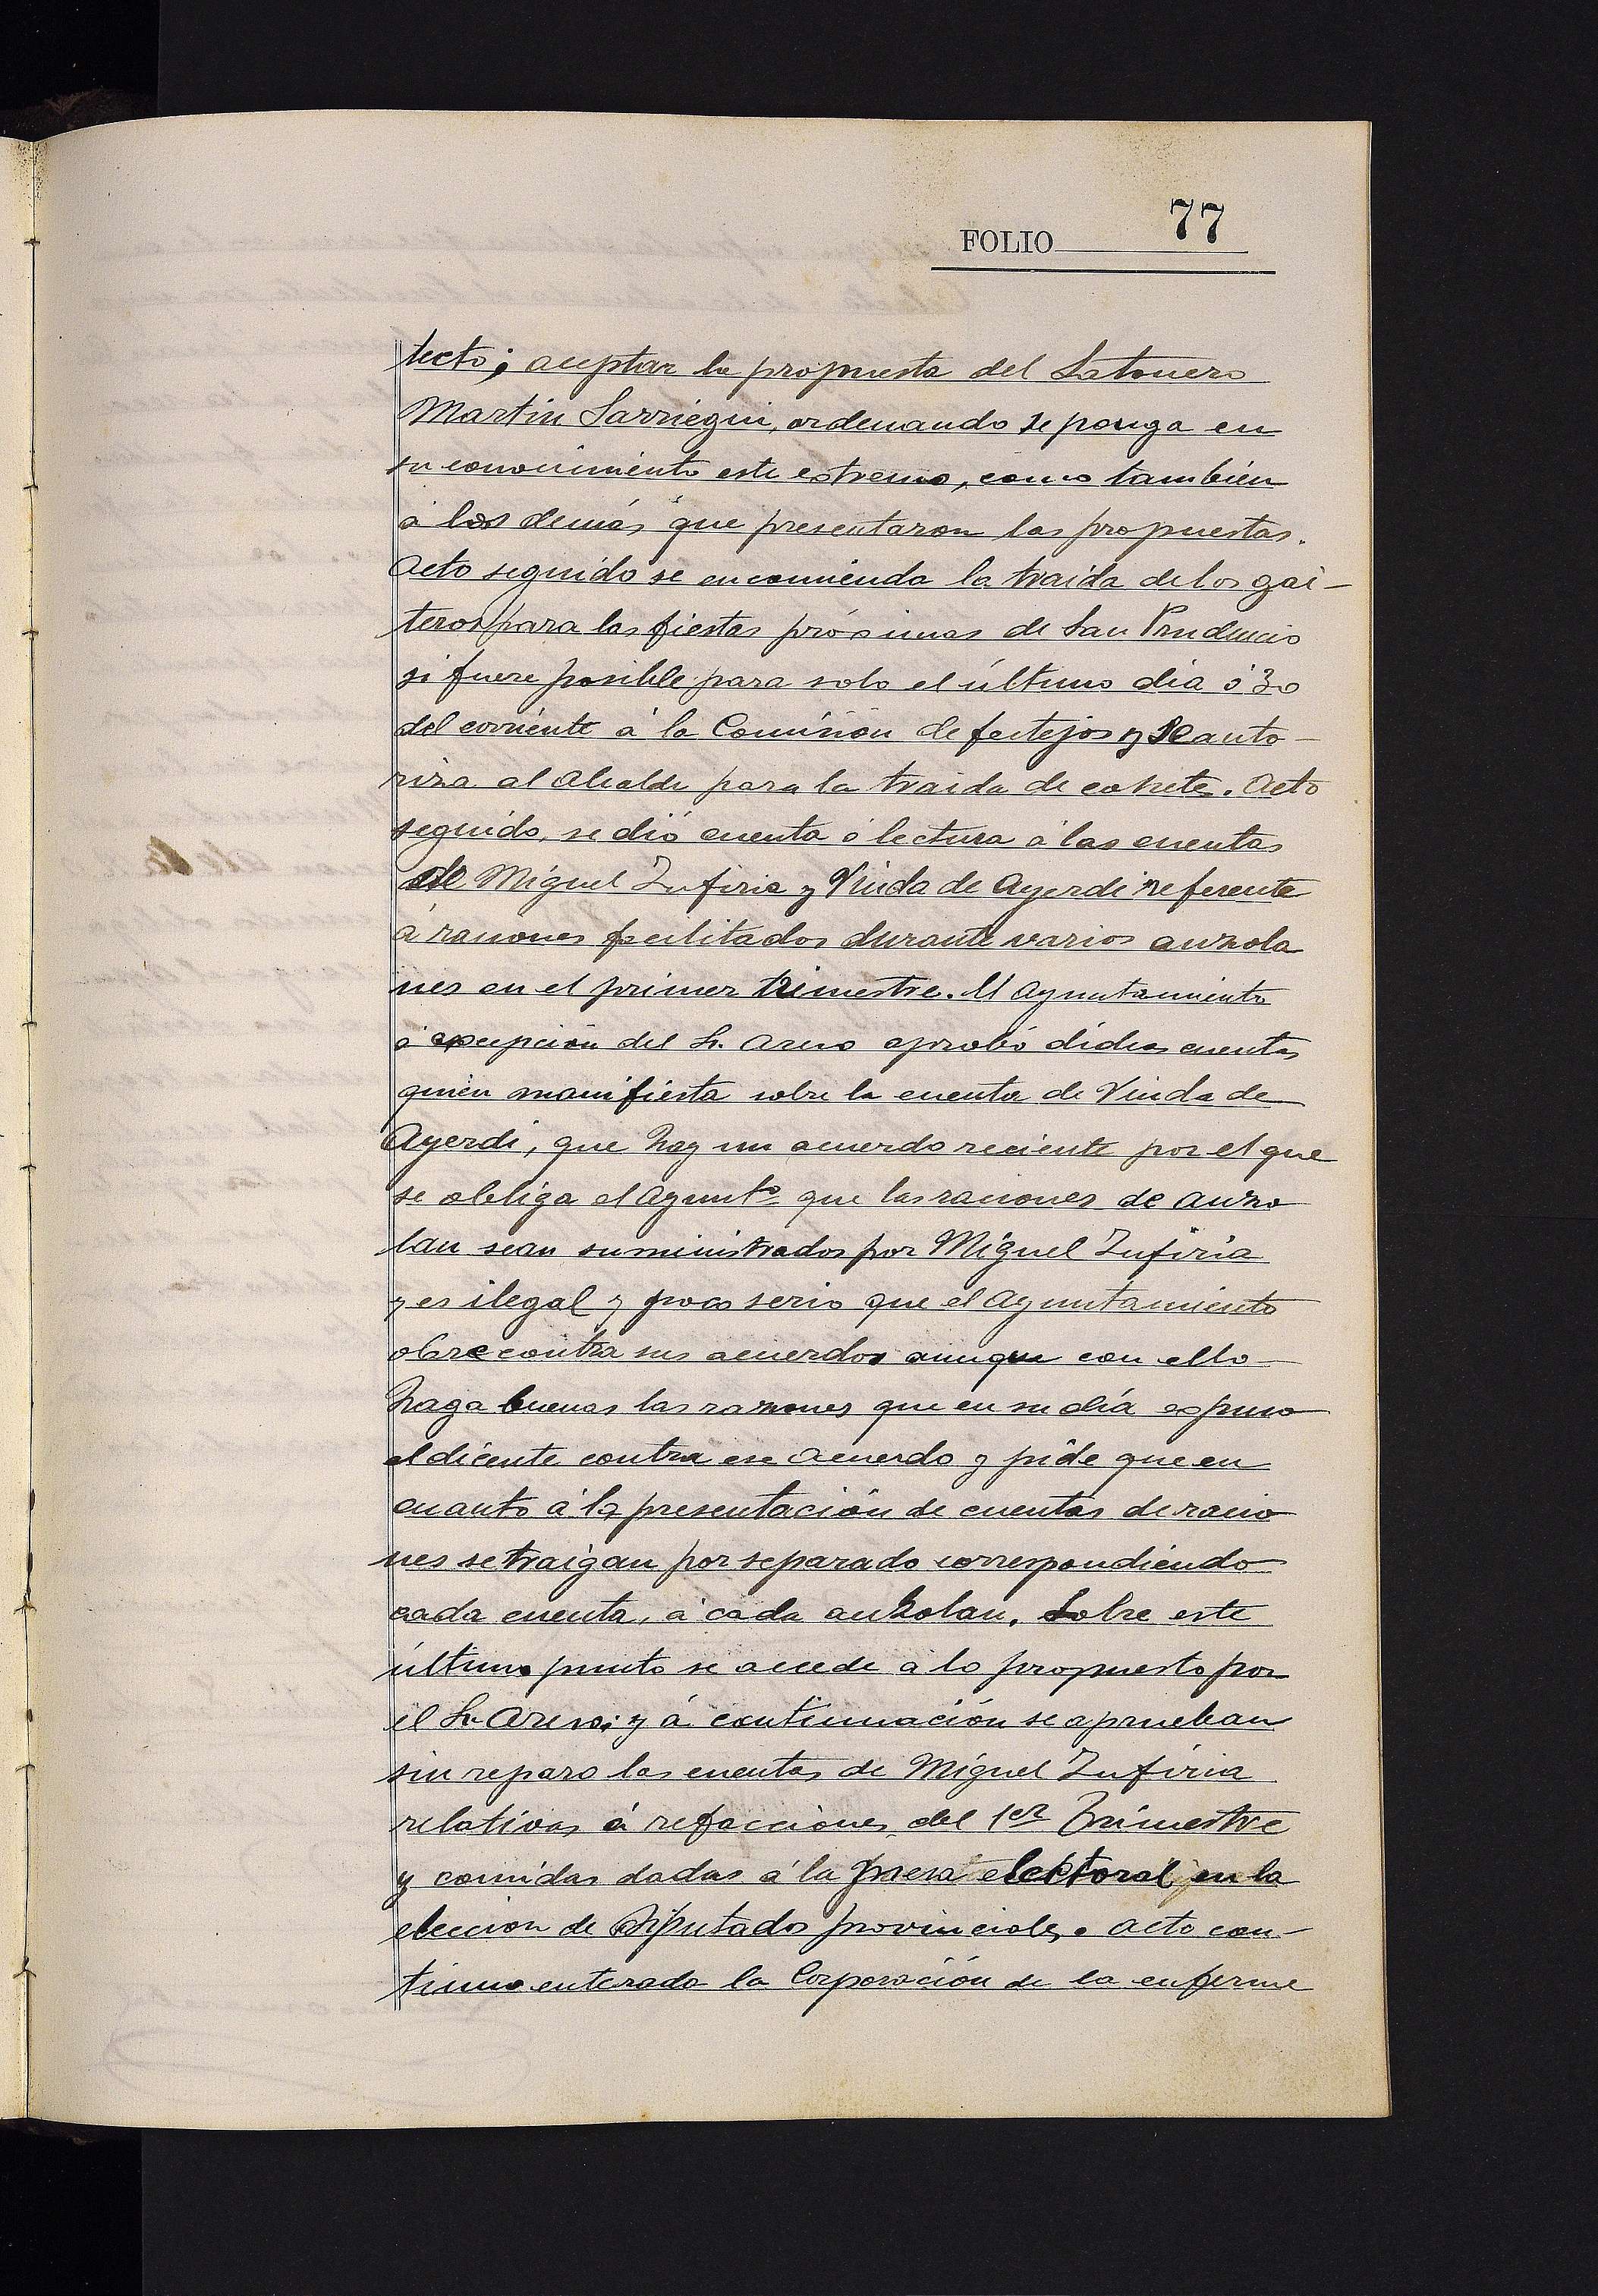 FOLIO 77
tecto; aceptar la propuesta del Latonero
Martin Sarriegui, ordenando se ponga en
su conocimiento este estremo, como también
á los demás que presentaron las propuestas.
Acto seguido se encomienda la traida de los gai-
teros para las fiestas próximas de San Prudencio
si fuere posible para solo el último dia ó 30
del corriente á la Comisión de festejos y se auto-
riza al Alcalde para la traida de cohete. Acto
seguido, se dió cuenta ó lectura á las cuentas
de Miguel Zufiria y Viuda de Ayerdi referente
á raciones facilitados durante varios auzola
nes en el primer trimestre. El Ayuntamiento
á excepción del Sr. aprobó dichas cuentas
quien manifiesta sobre la cuenta de Viuda de
Ayerdi, que hay un acuerdo reciente por el que
se obliga el Ayuntº que las raciones de auzo
lan sean suministrados por Miguel Zufiria
y es ilegal y poco serio que el Ayuntamiento
obre contra sus acuerdos aunque con ello
haga buenas las razones que en su día expuso
el dicente contra ese acuerdo y pide que en
cuanto á la presentación de cuentas de racio
nes se traigan por separado correspondiendo
cada cuenta, á cada auzolan. Sobre este
último punto se accede a lo propuesto por
el Sr. y á continuación se aprueban
sin reparo las cuentas de Miguel Zufiria
relativas á refacciones del 1er Trimestre
y comidas dadas á la mesa electoral en la
eleccion de Diputados provinciales. Acto con-
tinuo enterada la Corporación de la enferme